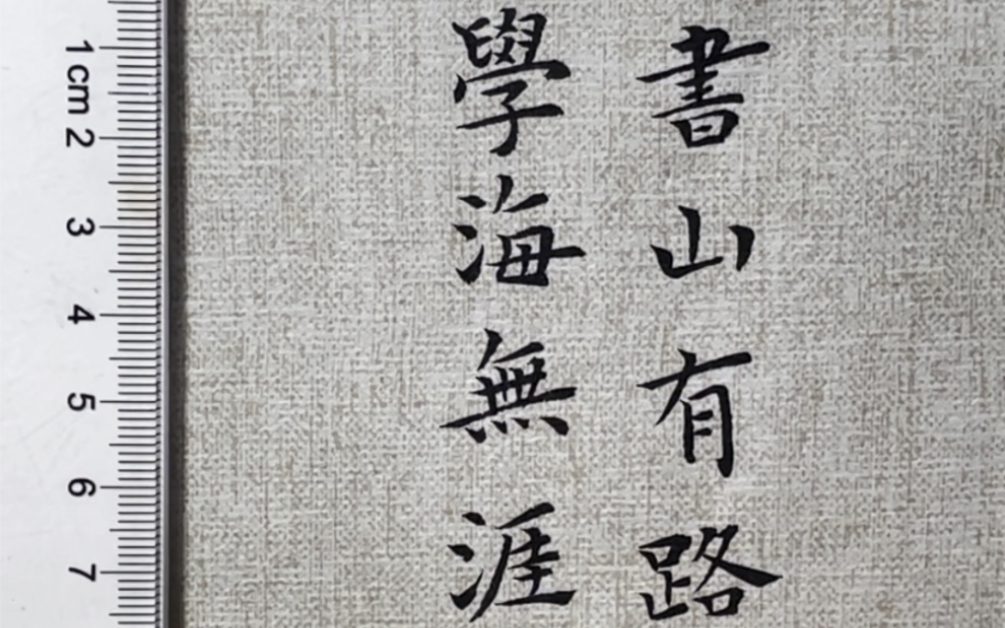 書山有路
學海無涯
1cm
2
3
4
5
6
7